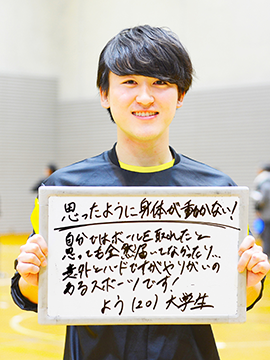 思ったように身体が動かない!
自分ではボールを取れたと
思っても全然届いてなかったり…
意外とハードですがやりがいの
あるスポーツです!
よう(20) 大学生